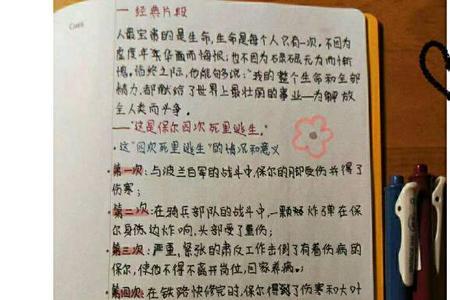 一 经典片段
人最宝贵的是生命,生命是每个人只有一次。不因为
虚度年华而悔恨;也不因为碌碌无为而惭
愧。临终之际,他能够说:"我的整个生命和全部
精力,都献给了世界上最壮丽的事业——为解放
全人类而斗争。
——"这是保尔四次死里逃生。"
·这"四次死里逃生"的情况和意义
第一次:与波兰白军的战斗中,保尔的脚受伤并得了
伤寒;
第二次:在骑兵部队的战斗中,一颗炸弹在保
尔身伤边炸响,头部受了重伤;
第三次:严重,紧张的肃反工作击倒了有着伤病的
保尔,使他不得不离开岗位,回家养病。;
第四次:在铁路快修完时,保尔得到了伤寒和大叶